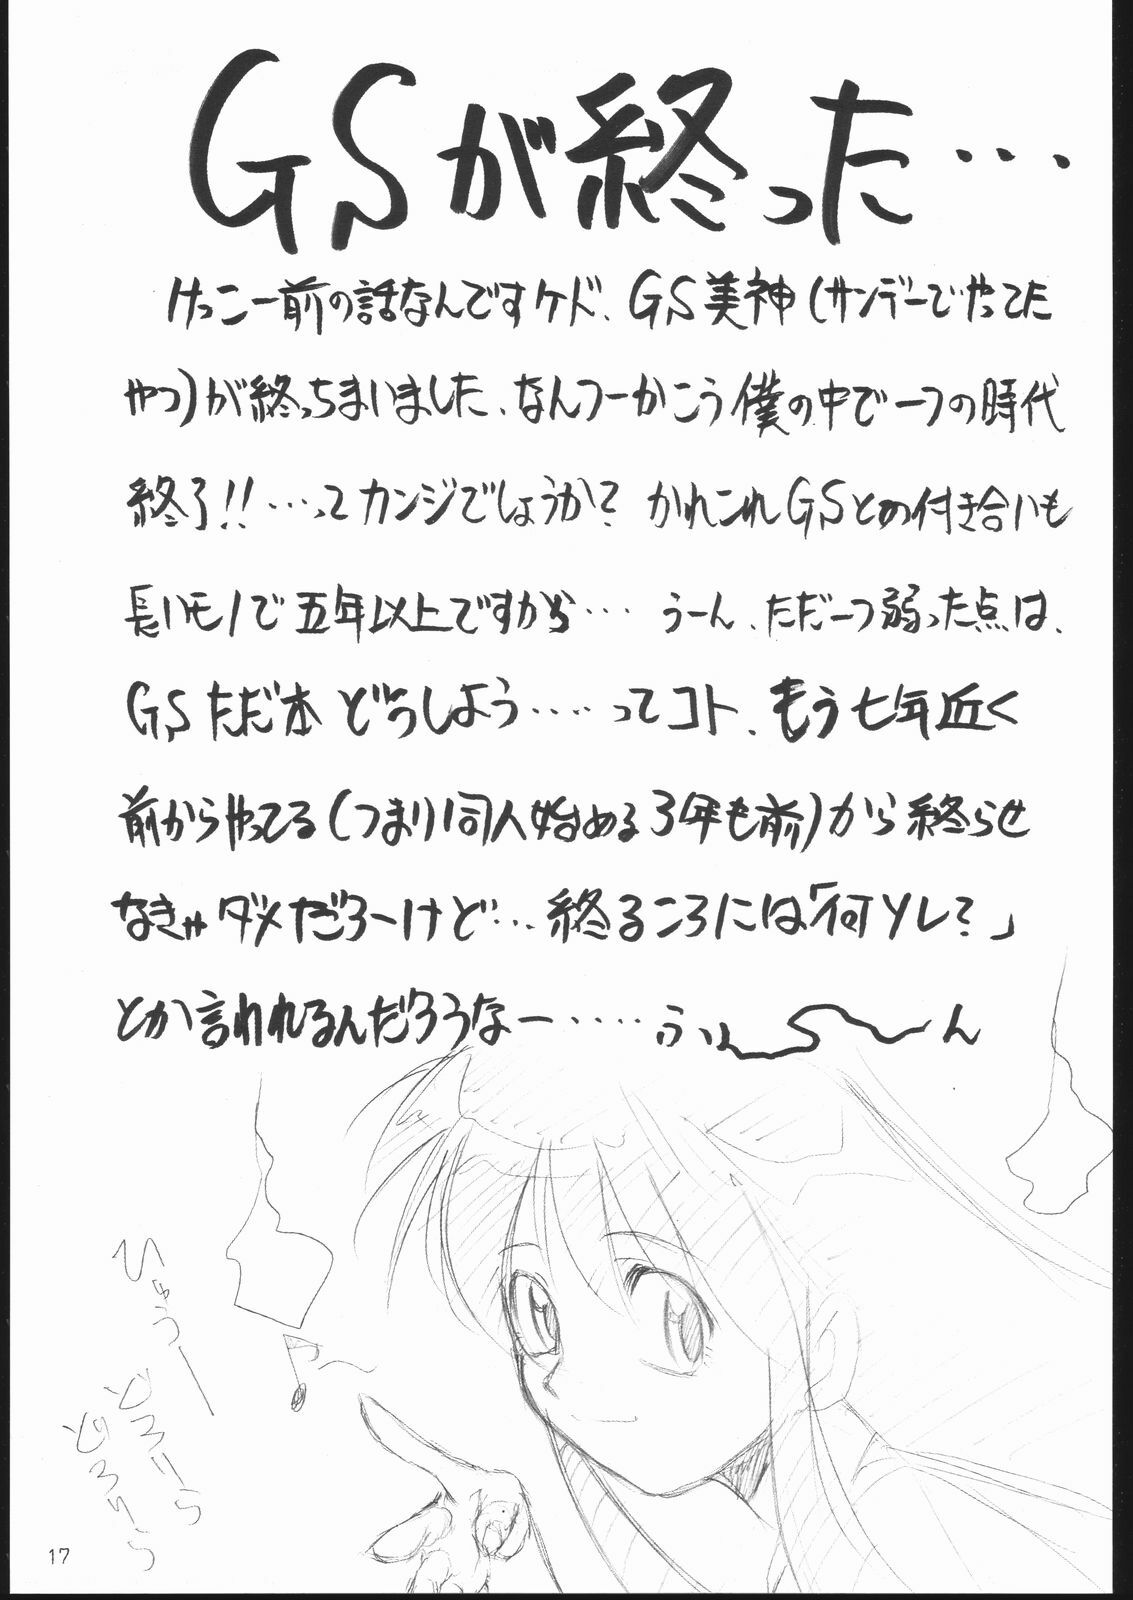 GSが終った…
けっこー前の話なんですケド、GS美神(サンデーでやってた
やつ)が終っちまいました、なんつーかこう僕の中で一つの時代
終了!!…ってカンジでしょうか? かれこれGSとの付き合いも
長いモノで五年以上ですから… うーん、ただ一つ弱った点は、
GSただ本どうしよう……ってコト、もう七年近く
前からやってる(つまり同人始める3年も前)から終らせ
なきゃダメだろーけど…終るころには「何ソレ?」
とか言われるんだろうなー…… ふぃ〜ん
ひゅうー
どろりら
どろりら
17